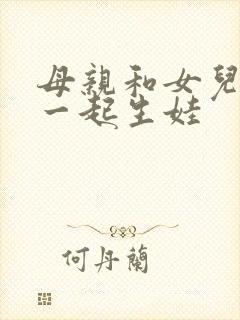 母親和女兒
一起生娃
何丹蘭